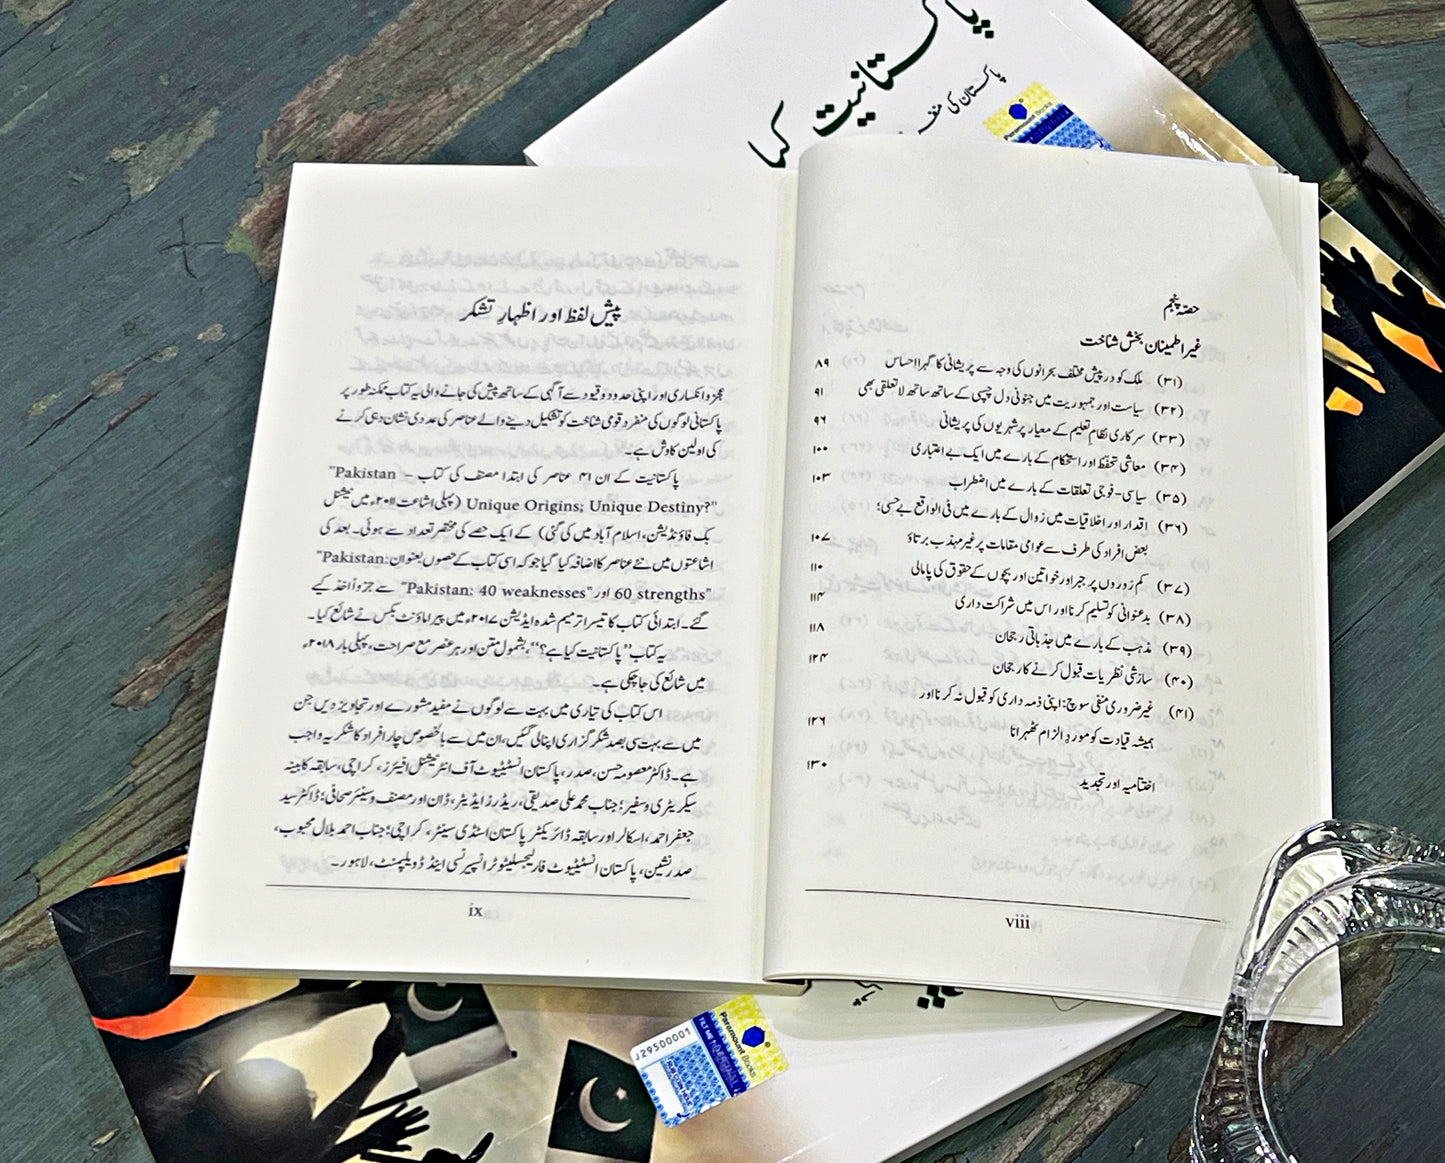 پاکستانیت کیا
پاکستان کی منفـ
Paramount Books
حصّہ پنجم
غیر اطمینان بخش شناخت
(۳۱) ملک کو درپیش مختلف بحرانوں کی وجہ سے پریشانی کا گہرا احساس ۸۹
(۳۲) سیاست اور جمہوریت میں جنونی دل چسپی کے ساتھ ساتھ لاتعلقی بھی ۹۱
(۳۳) سرکاری نظامِ تعلیم کے معیار پر شہریوں کی پریشانی ۹۶
(۳۴) معاشی تحفظ اور استحکام کے بارے میں ایک بے اعتباری ۱۰۰
(۳۵) سیاسی-فوجی تعلقات کے بارے میں اضطراب ۱۰۳
(۳۶) اقدار اور اخلاقیات میں زوال کے بارے میں فی الواقع بے حسی؛
بعض افراد کی طرف سے عوامی مقامات پر غیر مہذب برتاؤ ۱۰۷
(۳۷) کم زوروں پر جبر اور خواتین اور بچوں کے حقوق کی پامالی ۱۱۰
(۳۸) بدعنوانی کو تسلیم کرنا اور اس میں شراکت داری ۱۱۴
(۳۹) مذہب کے بارے میں جذباتی رجحان ۱۱۸
(۴۰) سازشی نظریات قبول کرنے کا رجحان ۱۲۴
(۴۱) غیر ضروری منفی سوچ: اپنی ذمہ داری کو قبول نہ کرنا اور
ہمیشہ قیادت کو موردِ الزام ٹھہرانا ۱۲۶
اختتامیہ اور تجدید ۱۳۰
viii
پیش لفظ اور اظہارِ تشکر
عجز و انکساری اور اپنی حدود و قیود سے آگہی کے ساتھ پیش کی جانے والی یہ کتاب ممکنہ طور پر
پاکستانی لوگوں کی منفرد قومی شناخت کو تشکیل دینے والے عناصر کی عددی نشان دہی کرنے
کی اولین کاوش ہے۔
پاکستانیت کے ان ۴۱ عناصر کی ابتدا مصنف کی کتاب - "Pakistan
Unique Origins; Unique Destiny?" (پہلی اشاعت ۲۰۱۱ء میں نیشنل
بک فاؤنڈیشن، اسلام آباد میں کی گئی) کے ایک حصے کی مختصر تعداد سے ہوئی۔ بعد کی
اشاعتوں میں نئے عناصر کا اضافہ کیا گیا جو کہ اسی کتاب کے حصوں بعنوان "Pakistan:
60 strengths" اور "Pakistan: 40 weaknesses" سے جزواً اخذ کیے
گئے۔ ابتدائی کتاب کا تیسرا ترمیم شدہ ایڈیشن ۲۰۱۷ء میں پیراماؤنٹ بکس نے شائع کیا۔
یہ کتاب "پاکستانیت کیا ہے؟"، بشمول متن اور ہر عنصر مع صراحت، پہلی بار ۲۰۱۸ء
میں شائع کی جاچکی ہے۔
اس کتاب کی تیاری میں بہت سے لوگوں نے مفید مشورے اور تجاویز دیں جن
میں سے بہت سی بصد شکر گزاری اپنالی گئیں، ان میں سے بالخصوص چار افراد کا شکریہ واجب
ہے۔ ڈاکٹر معصومہ حسن، صدر، پاکستان انسٹیٹیوٹ آف انٹرنیشنل افیئرز، کراچی، سابقہ کابینہ
سیکریٹری و سفیر؛ جناب محمد علی صدیقی، ریڈرز ایڈیٹر، ڈان اور مصنف و سینئر صحافی؛ ڈاکٹر سید
جعفر احمد، اسکالر اور سابقہ ڈائریکٹر پاکستان اسٹڈی سینٹر، کراچی؛ جناب احمد بلال محبوب،
صدر نشین، پاکستان انسٹیٹیوٹ فار لیجسلیٹو ٹرانسپیرنسی اینڈ ڈویلپمنٹ، لاہور۔
ix
J29500001
Paramount Books